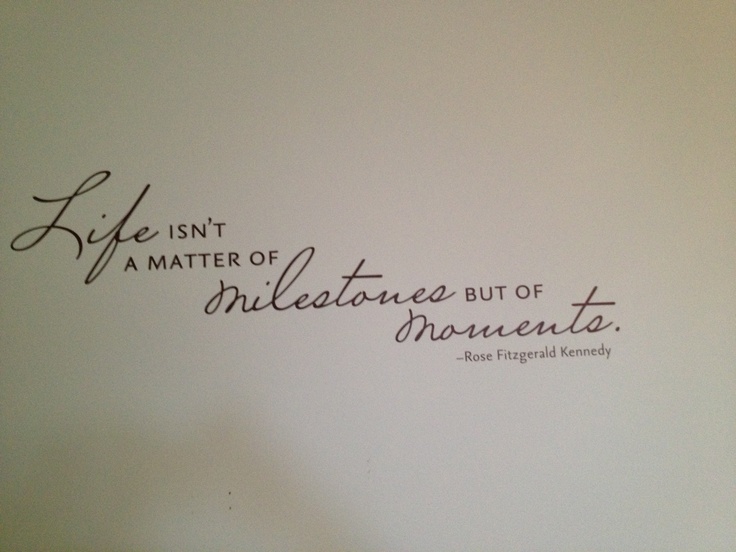 Life ISN'T
A MATTER OF
milestones BUT OF
moments.
–Rose Fitzgerald Kennedy